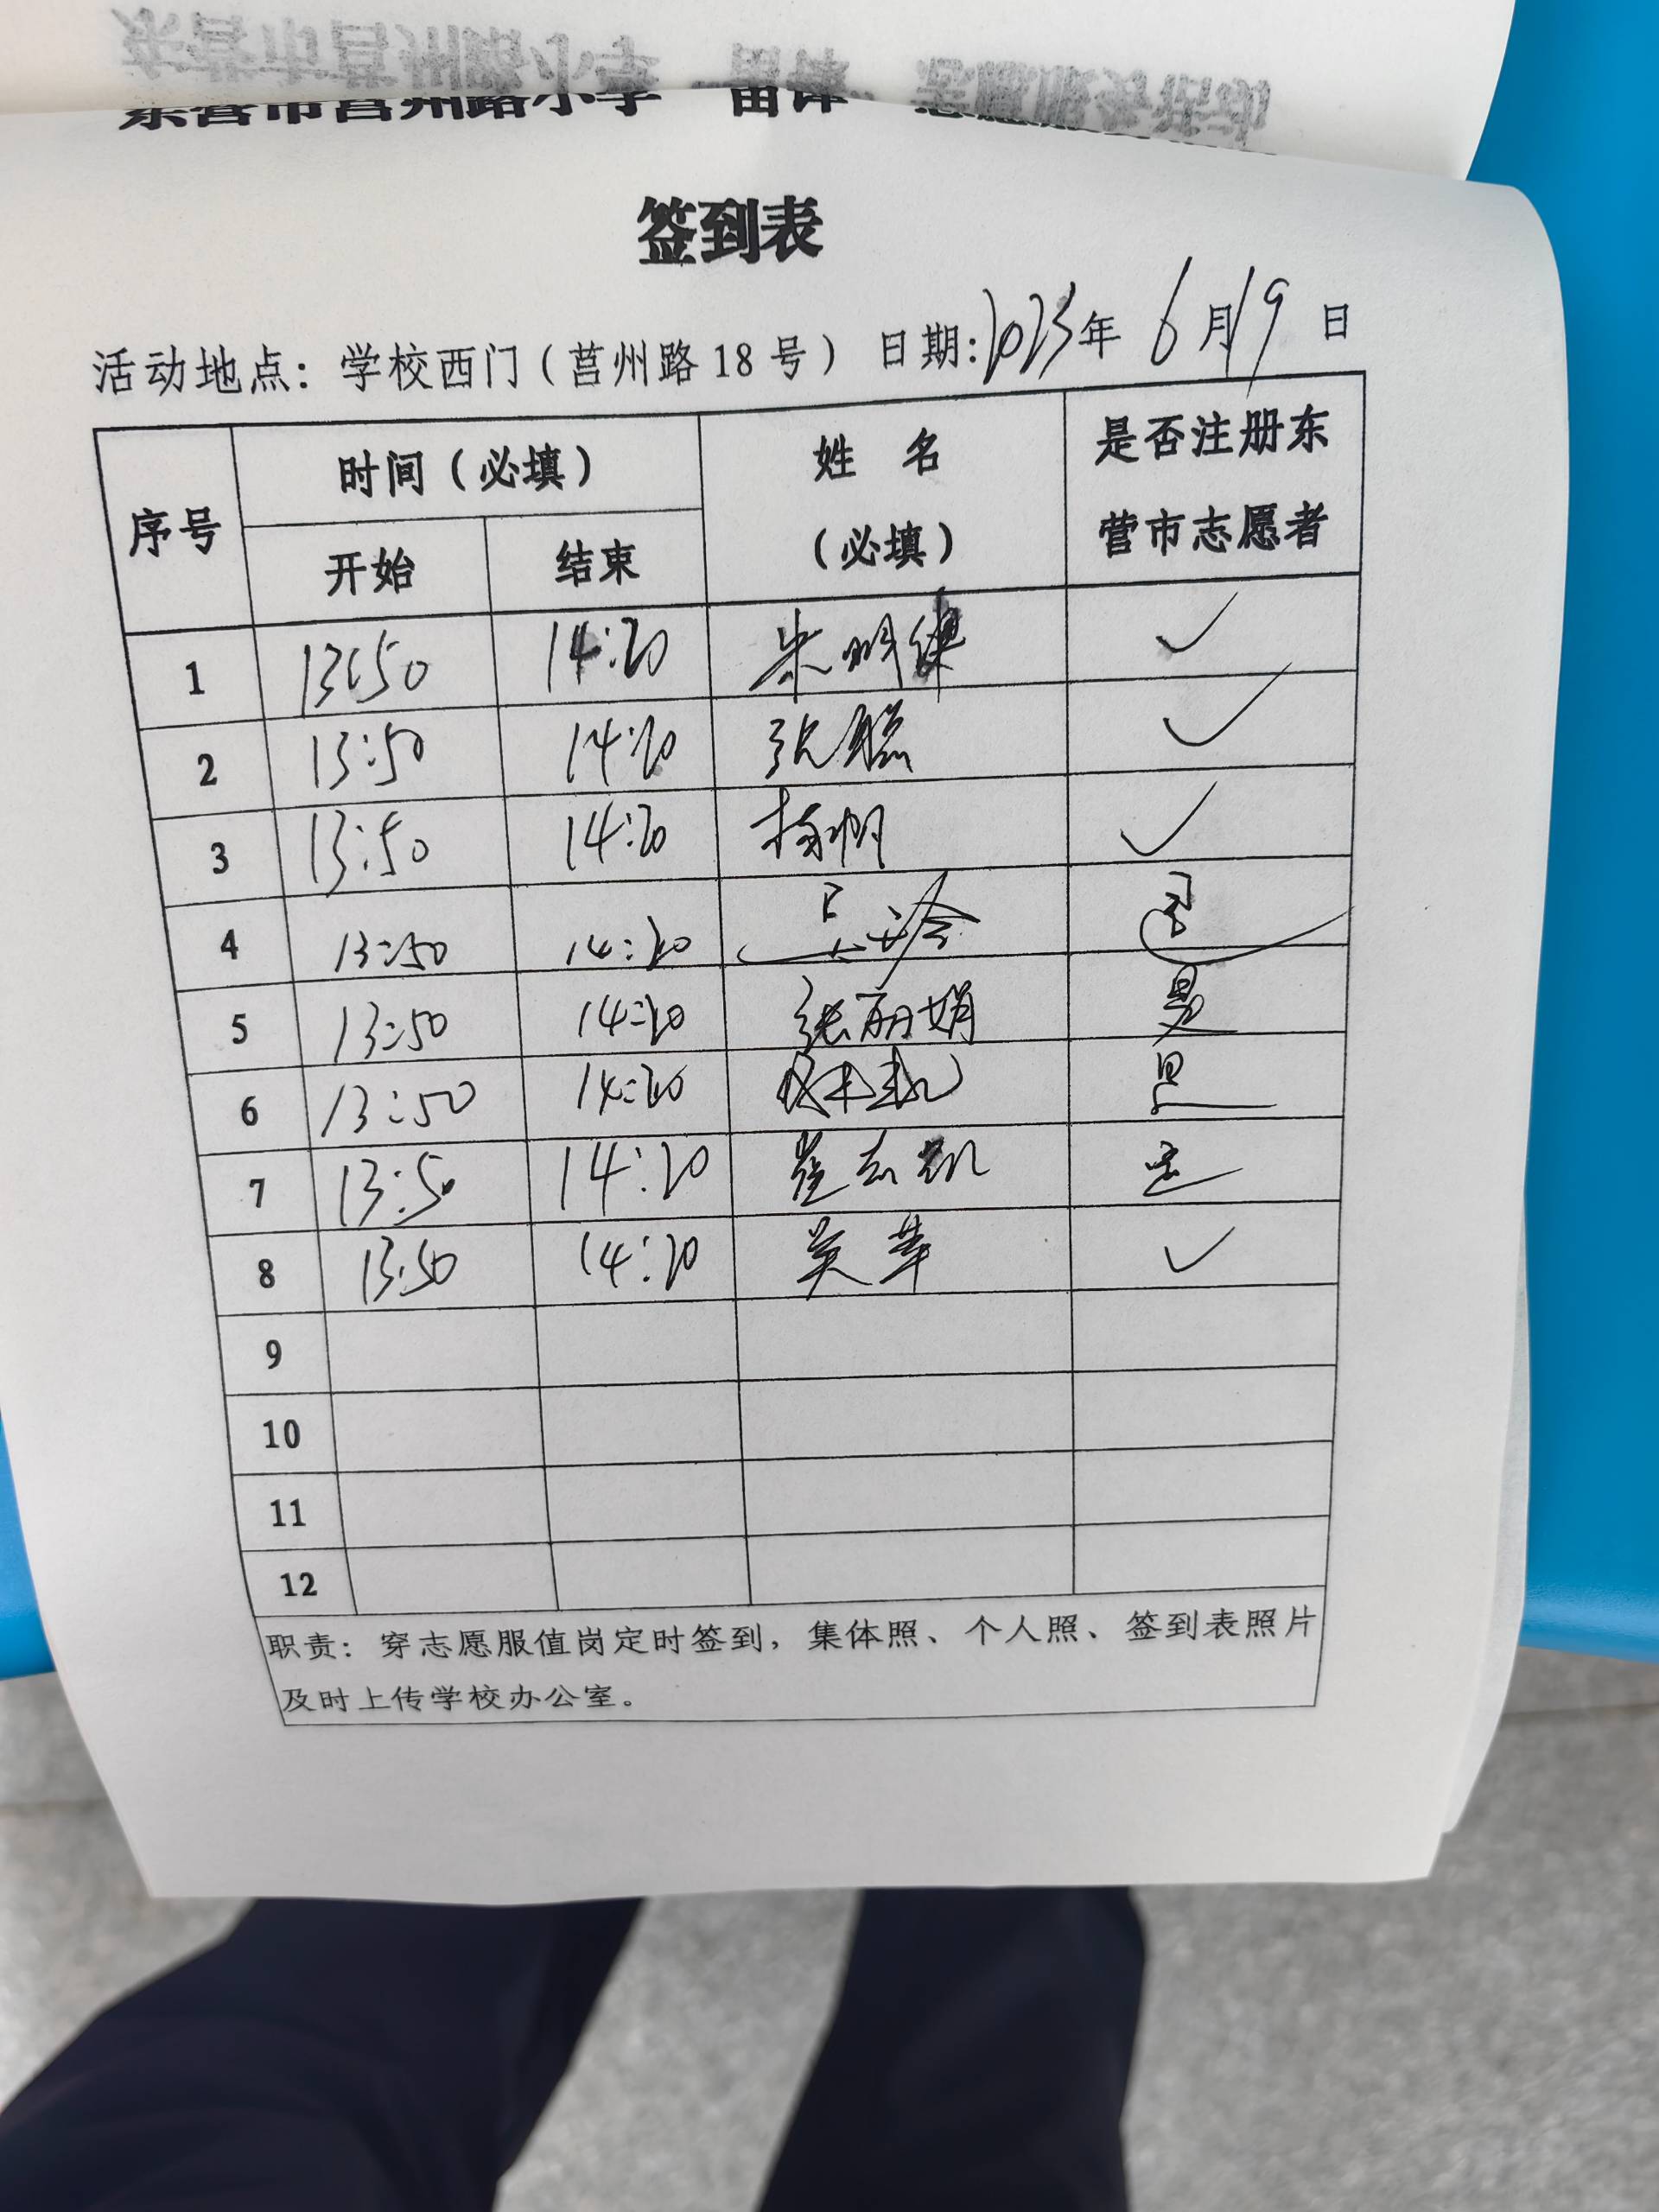 东营市莒州路小学
签到表
活动地点：学校西门（莒州路18号） 日期:2023年 6月19日
序号 时间（必填） 姓 名 （必填） 是否注册东营市志愿者
开始 结束
1 13:50 14:20 朱明 ✓
2 13:50 14:20 张聪 ✓
3 13:50 14:20 杨帆 ✓
4 13:50 14:20
5 13:50 14:20 张丽娟 是
6 13:50 14:20 是
7 13:50 14:20 崔志凯 是
8 13:50 14:20 吴苹 ✓
9
10
11
12
职责：穿志愿服值岗定时签到，集体照、个人照、签到表照片
及时上传学校办公室。